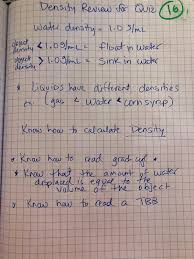 Density Review for Quiz 16
water density = 1.0 g/mL
object density < 1.0 g/mL = float in water
object density > 1.0 g/mL = sink in water
* Liquids have different densities
ex: (gas < water < corn syrup)
Know how to calculate Density
* Know how to read grad cyl *
* Know that the amount of water
displaced is equal to the
volume of the object
* Know how to read a TBB